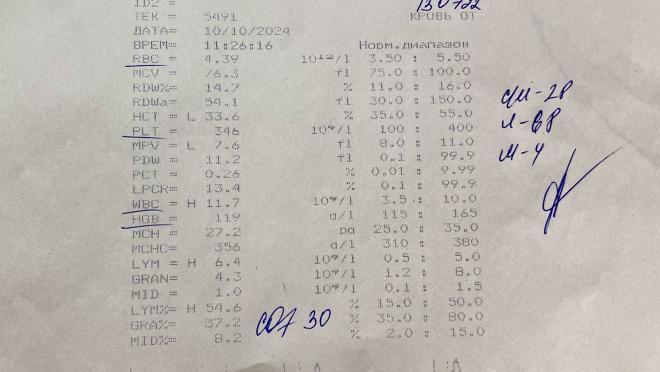 ID2 =
ТЕК = 5491 КРОВЬ ОТ
ДАТА= 10/10/2024
ВРЕМ= 11:26:16 Норм.диапазон
RBC = 4.39 10¹²/l 3.50 : 5.50
MCV = 76.3 fl 75.0 : 100.0
RDW%= 14.7 % 11.0 : 16.0
RDWa= 54.1 fl 30.0 : 150.0
HCT = L 33.6 % 35.0 : 55.0
PLT = 346 10⁹/l 100 : 400
MPV = L 7.6 fl 8.0 : 11.0
PDW = 11.2 fl 0.1 : 99.9
PCT = 0.26 % 0.01 : 9.99
LPCR= 13.4 % 0.1 : 99.9
WBC = H 11.7 10⁹/l 3.5 : 10.0
HGB = 119 g/l 115 : 165
MCH = 27.2 pg 25.0 : 35.0
MCHC= 356 g/l 310 : 380
LYM = H 6.4 10⁹/l 0.5 : 5.0
GRAN= 4.3 10⁹/l 1.2 : 8.0
MID = 1.0 10⁹/l 0.1 : 1.5
LYM%= H 54.6 % 15.0 : 50.0
GRA%= 37.2 СОЭ 30 % 35.0 : 80.0
MID%= 8.2 % 2.0 : 15.0